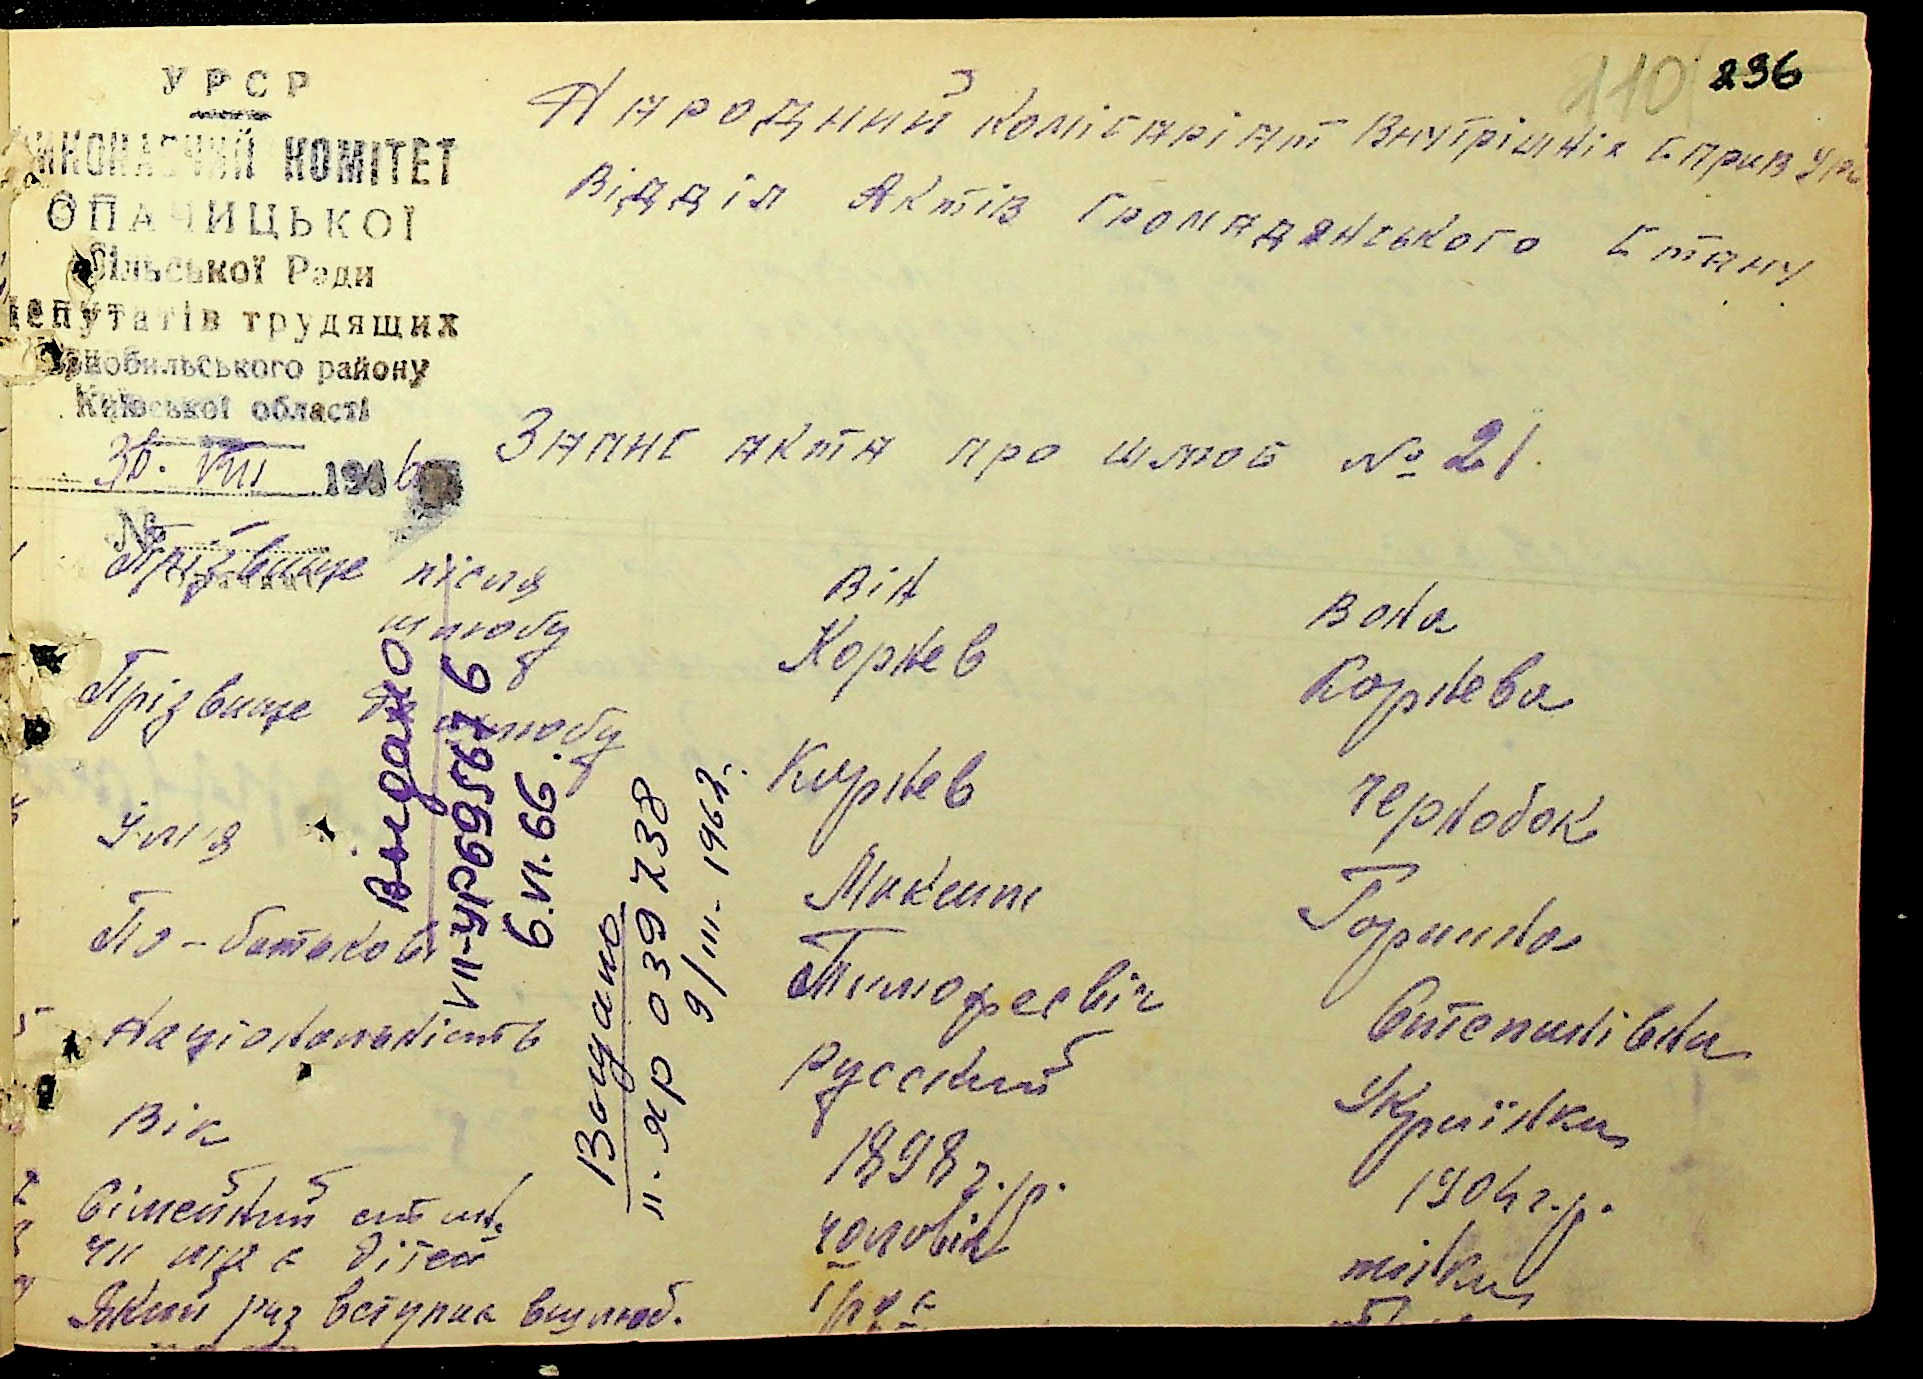 110 236
УРСР
ВИКОНАВЧИЙ КОМІТЕТ
ОПАЧИЦЬКОЇ
Сільської Ради
депутатів трудящих
Чорнобильського району
Київської області
30. VIII 1946
№
Народний комісаріат Внутрішніх справ УР
Відділ Актів Громадянського Стану
Запис акта про шлюб № 21.
Він Вона
Прізвище після шлюбу Корнев Корнева
Прізвище до шлюбу Корнев Чернобок
Імя Максим Горпина
По-батькові Тимофеевіч Степанівна
Національність Русский Українка
Вік 1898 г.р. 1904 г.р.
Сімейний стан чоловік жінка
чи має дітей
Який раз вступає в шлюб. I раз
Выдано
VII-УР695676
6.VI.66.
Видано
II-ЯР 039738
9/III-1962.